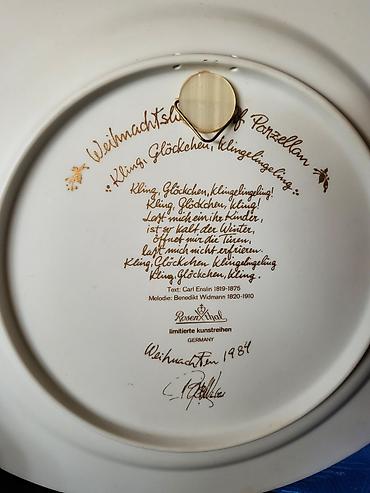 Weihnachtsl f Porzellan
Kling, Glöckchen, Klingelingeling
Kling, Glöckchen, Klingelingeling!
Kling, Glöckchen, Kling!
Laßt mich ein ihr Kinder,
ist so kalt der Winter,
öffnet mir die Türen,
laßt mich nicht erfrieren.
Kling, Glöckchen Klingelingeling
Kling, Glöckchen, Kling.
Text: Carl Enslin 1819-1875
Melodie: Benedikt Widmann 1820-1910
Rosenthal
limitierte kunstreihen
GERMANY
Weihnachten 1984